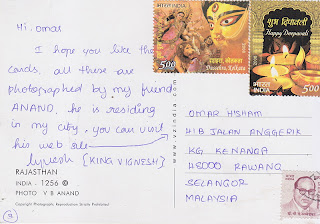 Hi, omar
I hope you like the
cards, all these are
photographed by my friend
ANAND. he is residing
in my city, you can visit
his web
[KING VIGNESH]
RAJASTHAN
INDIA - 1256 ©
PHOTO V B ANAND
Copyright Photographic Reproduction Strictly Prohibited
भारत INDIA
500
दशहरा, कोलकाता
Dussehra Kolkata
शुभ दीपावली
Happy Deepavali
भारत
INDIA
500
OMAR HISHAM
41B JALAN ANGGERIK
KG KENANGA
48000 RAWANG
SELANGOR
MALAYSIA